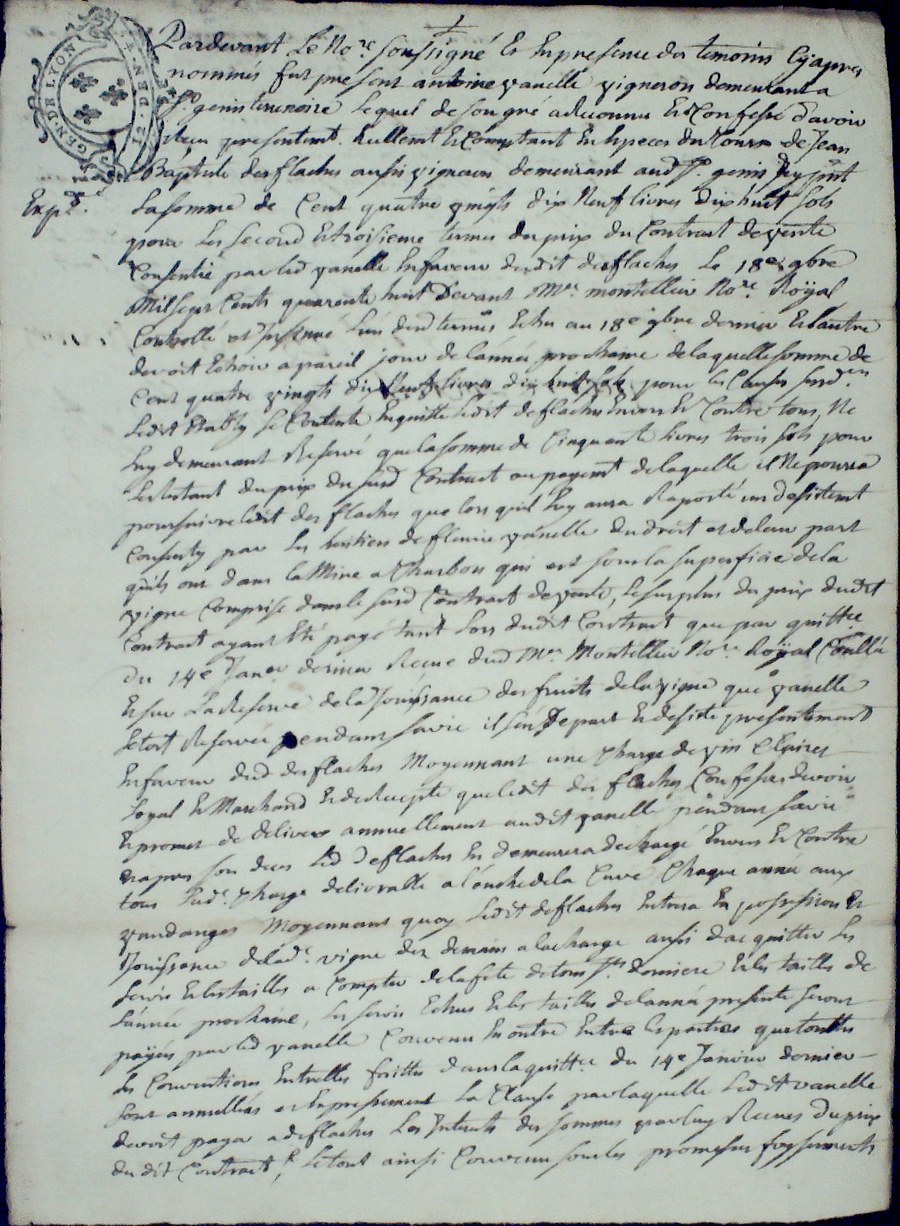 GEN. DE LYON
12. DEN. 4.
Pardevant Le No.re soussigné Et En presence des temoins Cyapres
nommés fut present antoine vanelle vigneron demeurant a
St genis terrenoire Lequel de son gré a Reconnu Et Confessé d'avoir
Reçu presentemt. Reellemt Et Comptant En Especes du Cours de Jean
Baptiste desflaches aussi vigneron demeurant aud St. genis Icy pnt
Expd.
La somme de Cent quatre vingts dix Neuf livres dix huit sols
pour Les second Et troisieme termes du prix du Contract de vente
Consentie par led vanelle En faveur dudit desflaches Le 18e 9bre
Mil sept Cents quarante huit Devant Me. montellier No.re Royal
Controllé et Insinué L'un desd termes Echu au 18e 9bre dernier Et L'autre
devoit Echoir a pareil jour de L'année prochaine de laquelle somme de
Cent quatre vingts dix Neuf livres dix huit sols pour les Causes susd.
Ledit vanelle se Contente En quitte Ledit desflaches Envers Et Contre tous, Ne
Luy demeurant Reservé que la somme de Cinquante livres trois sols pour
Le Restant du prix du susd Contract au payemt de laquelle il Ne pourra
poursuivre Ledit des flaches que lors qu'il Luy aura Raporté un desistemt
Consenty par Les heritiers de fleurie vanelle du droit et de leur part
qu'ils ont dans la Mine a Charbon qui est sous la superficie de la
vigne Comprise dans le susd Contract de vente, Le surplus du prix dudit
Contract ayant Eté payé tant Lors dudit Contract que par quittce
du 14e Janer dernier Recue dud Me. Montellier No.re Royal Conllé
Et sur La Reserve de la Jouissance des fruits de la vigne que vanelle
s'etoit Reservée pendant sa vie il s'en Depart Et desiste presentement
En faveur dud desflaches Moyennant une Charge de vin Clairet
Loyal Et Marchand Et de Recepte que Ledit des flaches Confesse devoir
Et promet de delivrer annuellement audit vanelle pendant sa vie
Et apres son deces Led Desflaches En demeurera dechargé Envers Et Contre
tous Lad. Charge delivrable a l'anche de la Cuve Chaque année aux
vandanges Moyennant quoy Ledit desflaches Entrera En possession Et
Jouissance de lad. vigne dez demain a la charge aussi d'acquitter Les
servis Et les tailles a Compter de la fete de tous Sts. derniere Et les tailles de
L'année prochaine, Les servis Echus Et les tailles de L'année presente seront
payés par led vanelle Convenu En outre Entre Les parties que touttes
Les Conventions Entrelles faittes dans la quittce du 14e Janvier dernier
sont annullées et Expressement La Clause par laquelle Ledit vanelle
devoit payer a desflaches Les Interets des sommes par luy Recues du prix
du dit Contract, Le tout ainsi Convenu sous les promesses soy serments